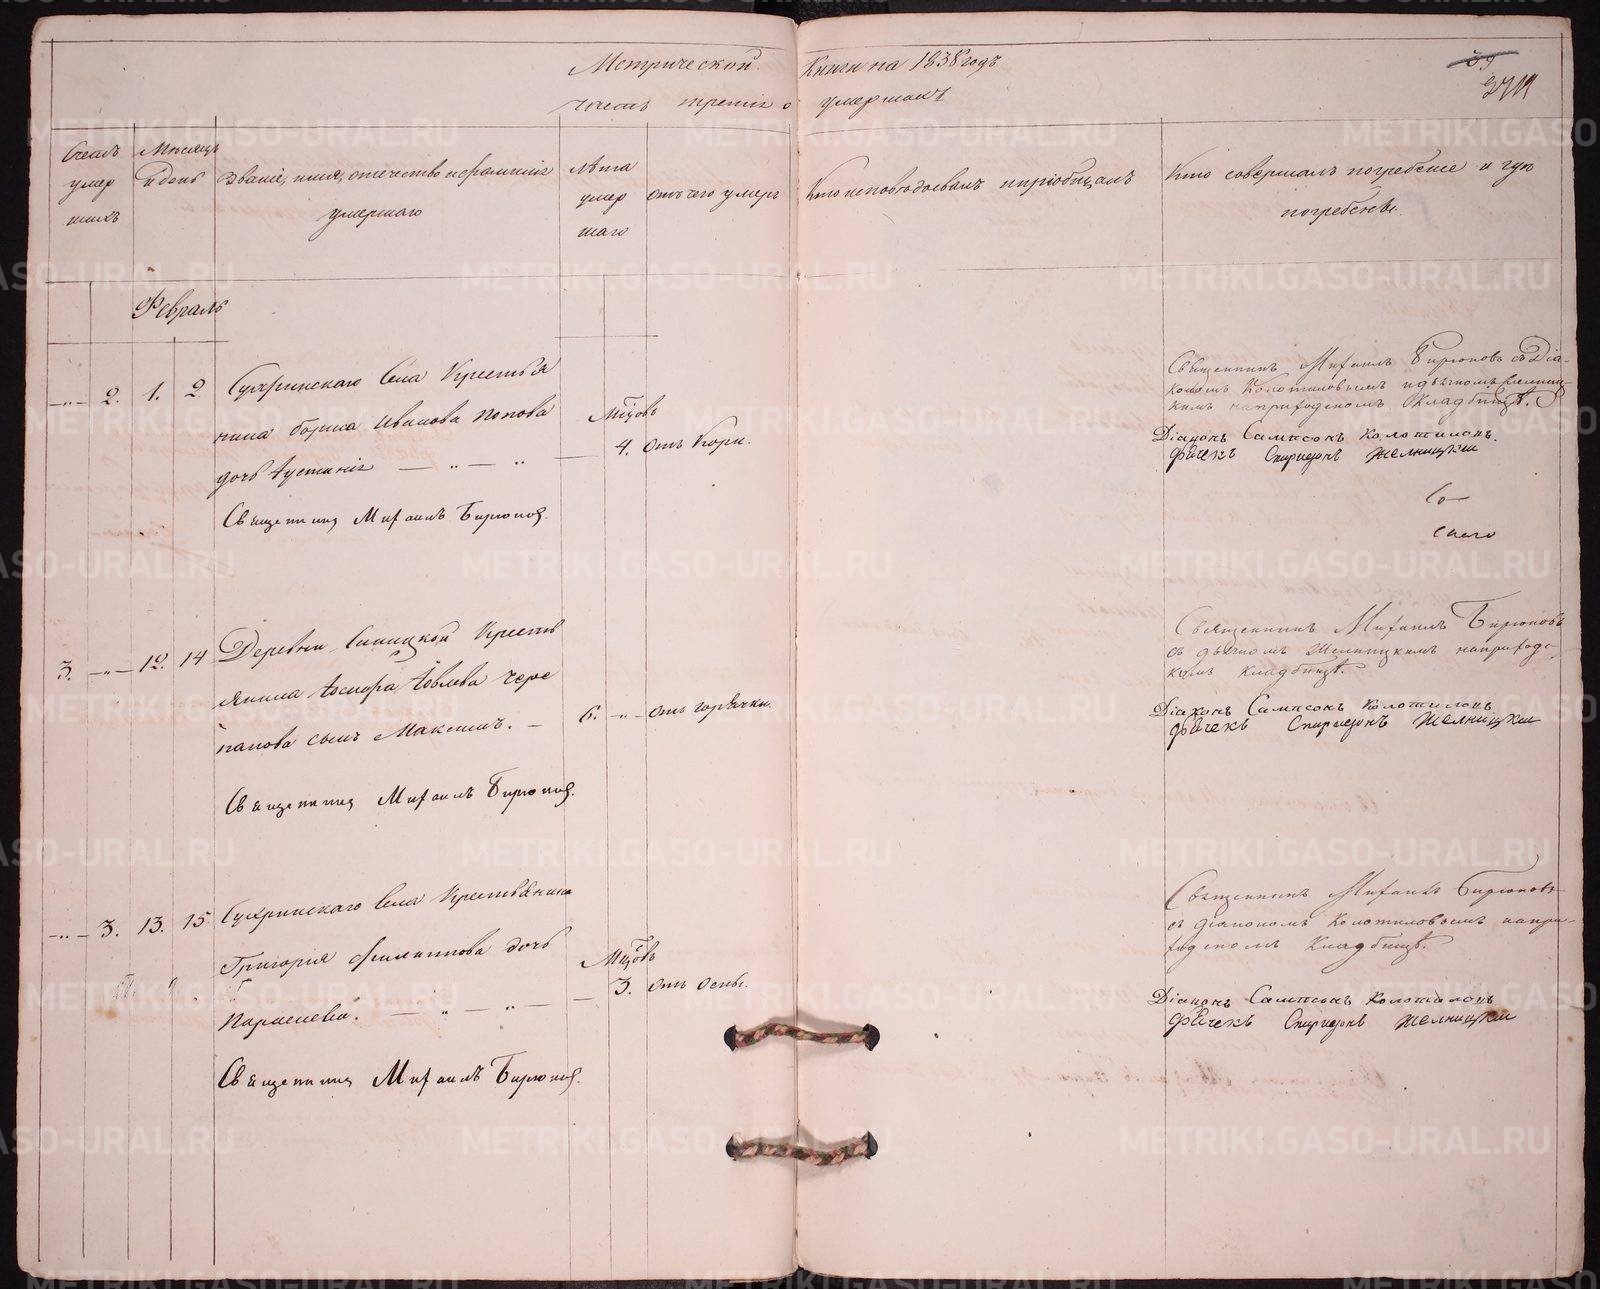 Метрической Книги на 1838 годъ
часть третія о умершихъ
39
Счетъ умершихъ
Мѣсяцъ и день
Званіе, имя, отечество и фамилія умершаго
Лѣта умершаго
Отъ чего умеръ
Кто исповѣдовалъ и пріобщалъ
Кто совершалъ погребеніе и гдѣ погребены.
Февраль
2. 1. 2
Сухринскаго Села Крестья
нина Бориса Иванова Попова
дочь Іустинія
Мцовъ
4. отъ Кори.
Священникъ Михаилъ Бирюковъ.
Священникъ Михаилъ Бирюковъ съ Діа-
кономъ Колотиловымъ и дьячкомъ
кимъ на приходскомъ Кладбищѣ.
Діаконъ Сампсонъ Колотиловъ.
Дьячекъ Спиридонъ Желницкій
Со-
сего
3. 12. 14
Деревни Синицкой Кресть
янина Іовлева Чере
панова сынъ Максимъ.
6. отъ горячки.
Священникъ Михаилъ Бирюковъ.
Священникъ Михаилъ Бирюковъ
съ дьячкомъ Желницкимъ на приходс-
комъ Кладбищѣ.
Діаконъ Сампсонъ Колотиловъ
Дьячекъ Спиридонъ Желницкій
3. 13. 15
Сухринскаго Села Крестьянина
Григорія Филиппова дочь
Мцовъ
3. отъ Оспы.
Священникъ Михаилъ Бирюковъ.
Священникъ Михаилъ Бирюковъ
съ діакономъ Колотиловымъ на при-
ходскомъ Кладбищѣ.
Діаконъ Сампсонъ Колотиловъ
Дьячекъ Спиридонъ Желницкій
METRIKI.GASO-URAL.RU